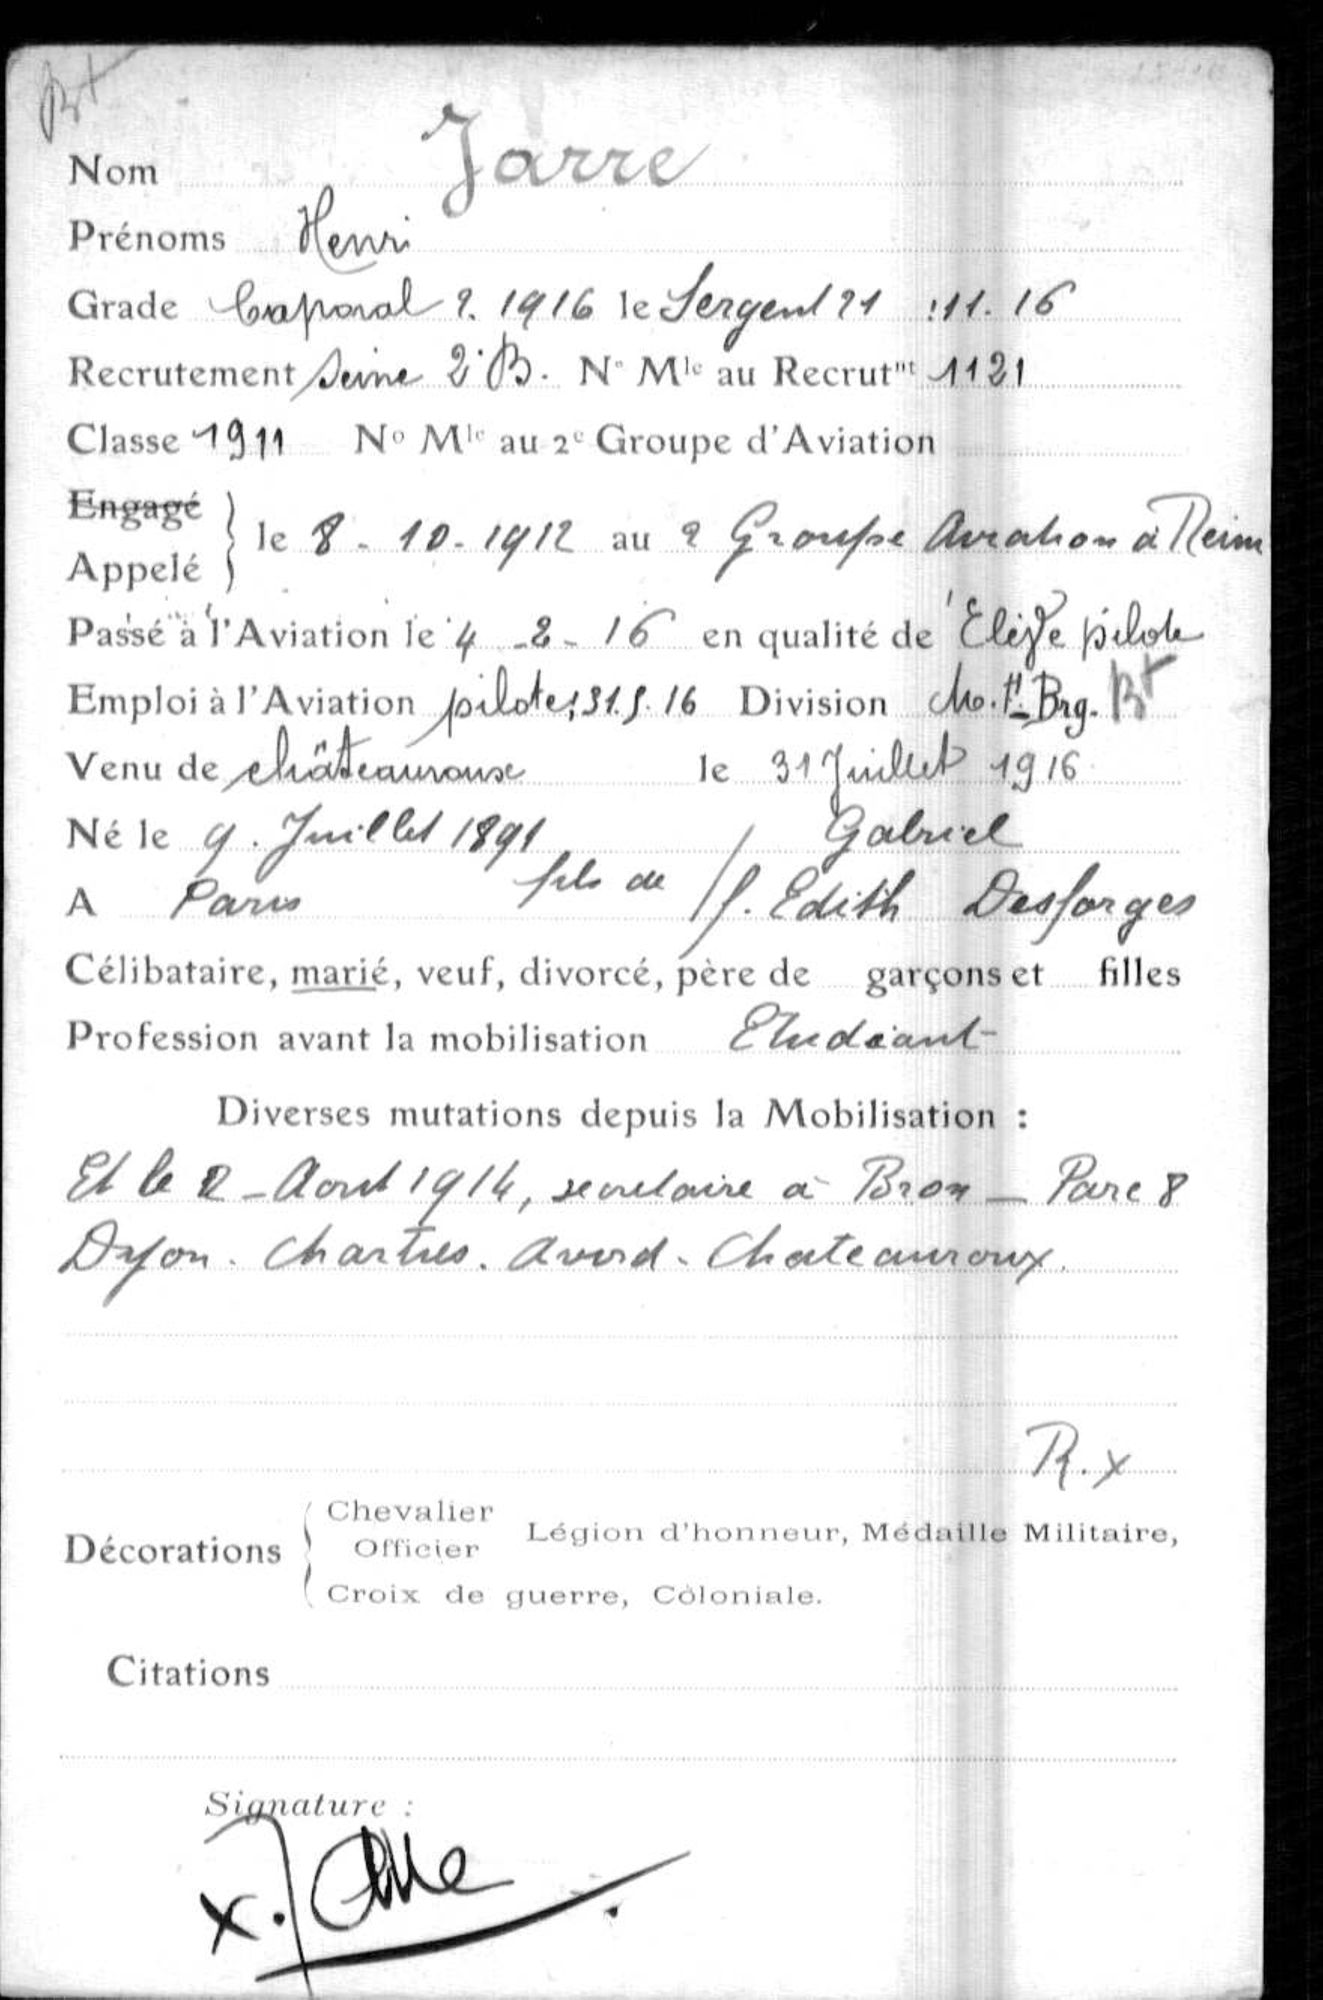 Bt
Nom Jarre
Prénoms Henri
Grade Caporal 2. 1916 le Sergent 21 .11. 16
Recrutement Seine 2e B. No Mle au Recrutnt 1121
Classe 1911 No Mle au 2e Groupe d'Aviation
Engagé
Appelé } le 8 - 10 - 1912 au 2 Groupe Aviation à Reim
Passé à l'Aviation le 4 - 2 - 16 en qualité de Elève pilote
Emploi à l'Aviation pilote 31.5.16 Division Brg. Bt
Venu de châteauroux le 31 Juillet 1916
Né le 9. Juillet 1891 Gabriel
A Paris fils de f. Edith Desforges
Célibataire, marié, veuf, divorcé, père de garçons et filles
Profession avant la mobilisation Etudiant
Diverses mutations depuis la Mobilisation :
Et le 2 - Aout 1914, secretaire à Bron - Parc 8
Dijon. Chartres. Avord - Chateauroux.
R. x
Décorations { Chevalier
Officier Légion d'honneur, Médaille Militaire,
Croix de guerre, Coloniale.
Citations
Signature :
x. Jarre